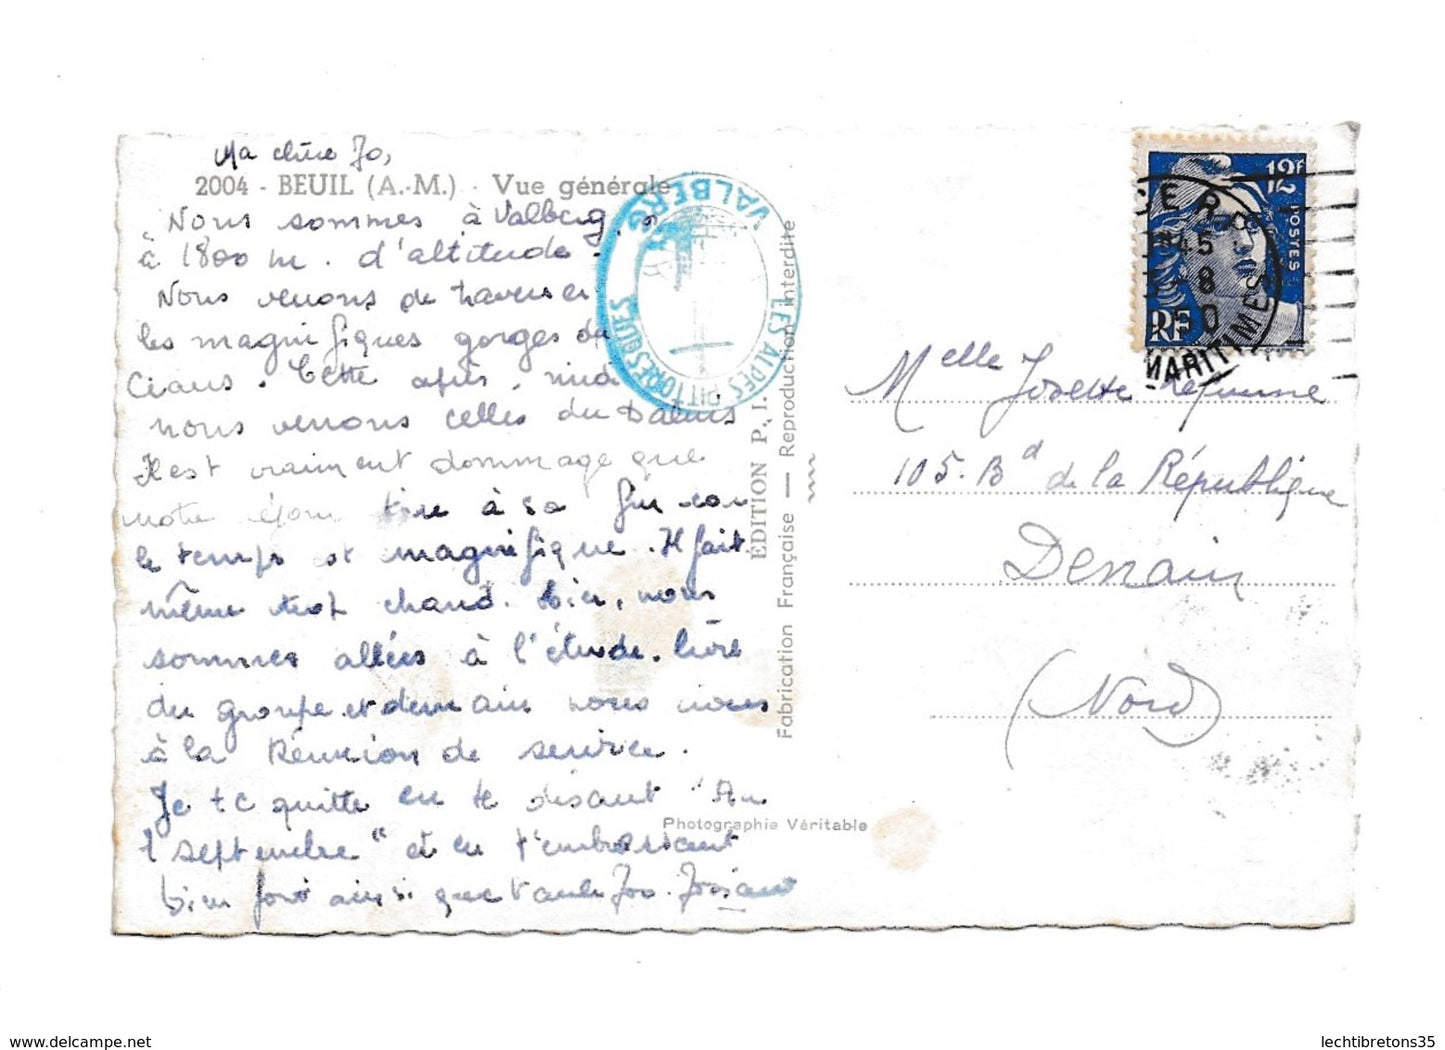 Ma chère Jo,
2004 - BEUIL (A.-M.) - Vue générale
Nous sommes à Valberg,
à 1800 m. d'altitude.
Nous venons de traverser
les magnifiques gorges du
Cians. Cette après-midi
nous verrons celles du Daluis
Il est vraiment dommage que
notre séjour tire à sa fin car
le temps est magnifique. Il fait
même trop chaud. Hier, nous
sommes allées à l'étude. livre
du groupe et demain nous irons
à la Réunion de service.
Je te quitte en te disant "Au
1 septembre" et en t'embrassant
bien fort ainsi que
VALBERG
LES ALPES PITTORESQUES
ÉDITION P. I.
Fabrication Française — Reproduction Interdite
Photographie Véritable
12F
POSTES
RF
BERG
45
8
50
MARITIMES
Melle Josette
105. Bd de la République
Denain
(Nord)
lechtibretons35